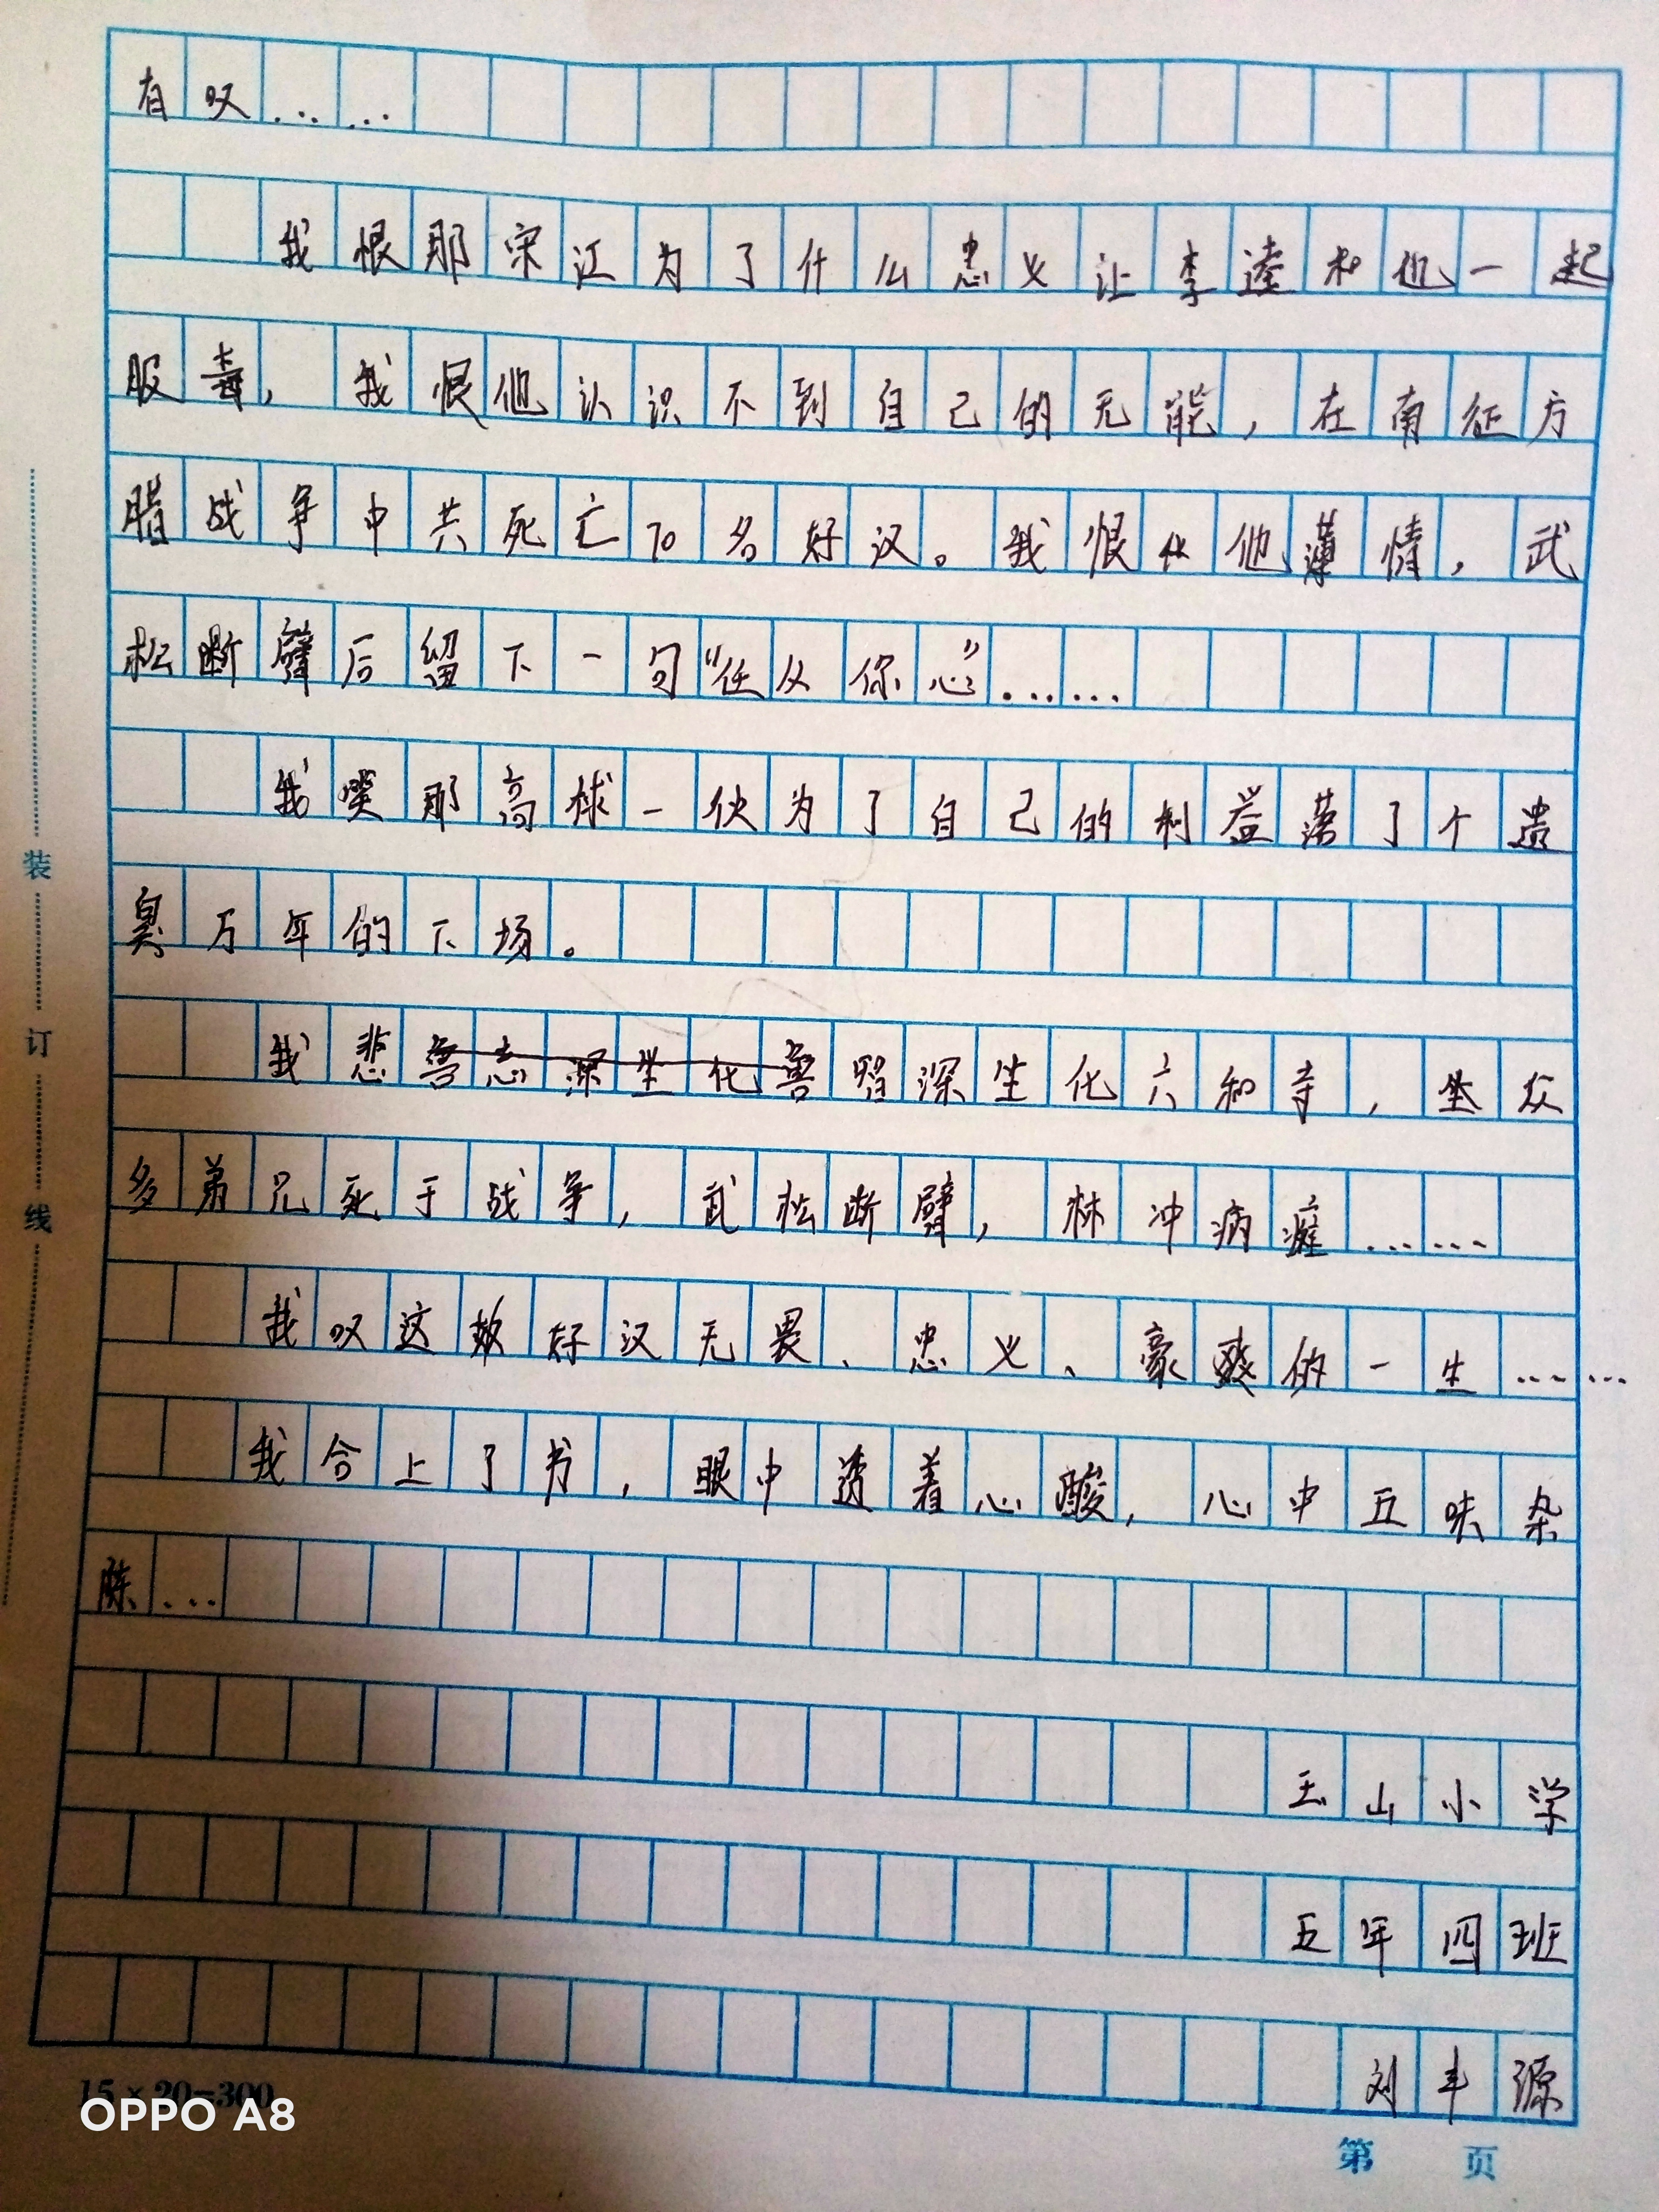 有叹……
我恨那宋江为了什么忠义让李逵和他一起
服毒，我恨他认识不到自己的无能，在南征方
腊战争中共死亡70名好汉。我恨他薄情，武
松断臂后留下一句“任从你心”……
我笑那高俅一伙为了自己的利益落了个遗
臭万年的下场。
我悲鲁智深坐化六和寺，众
多弟兄死于战争，武松断臂，林冲病瘫……
我叹这些好汉无畏、忠义、豪爽的一生……
我合上了书，眼中透着心酸，心中五味杂
陈…
玉山小学
五年四班
刘丰源
装
订
线
15×20=300
OPPO A8
第 页